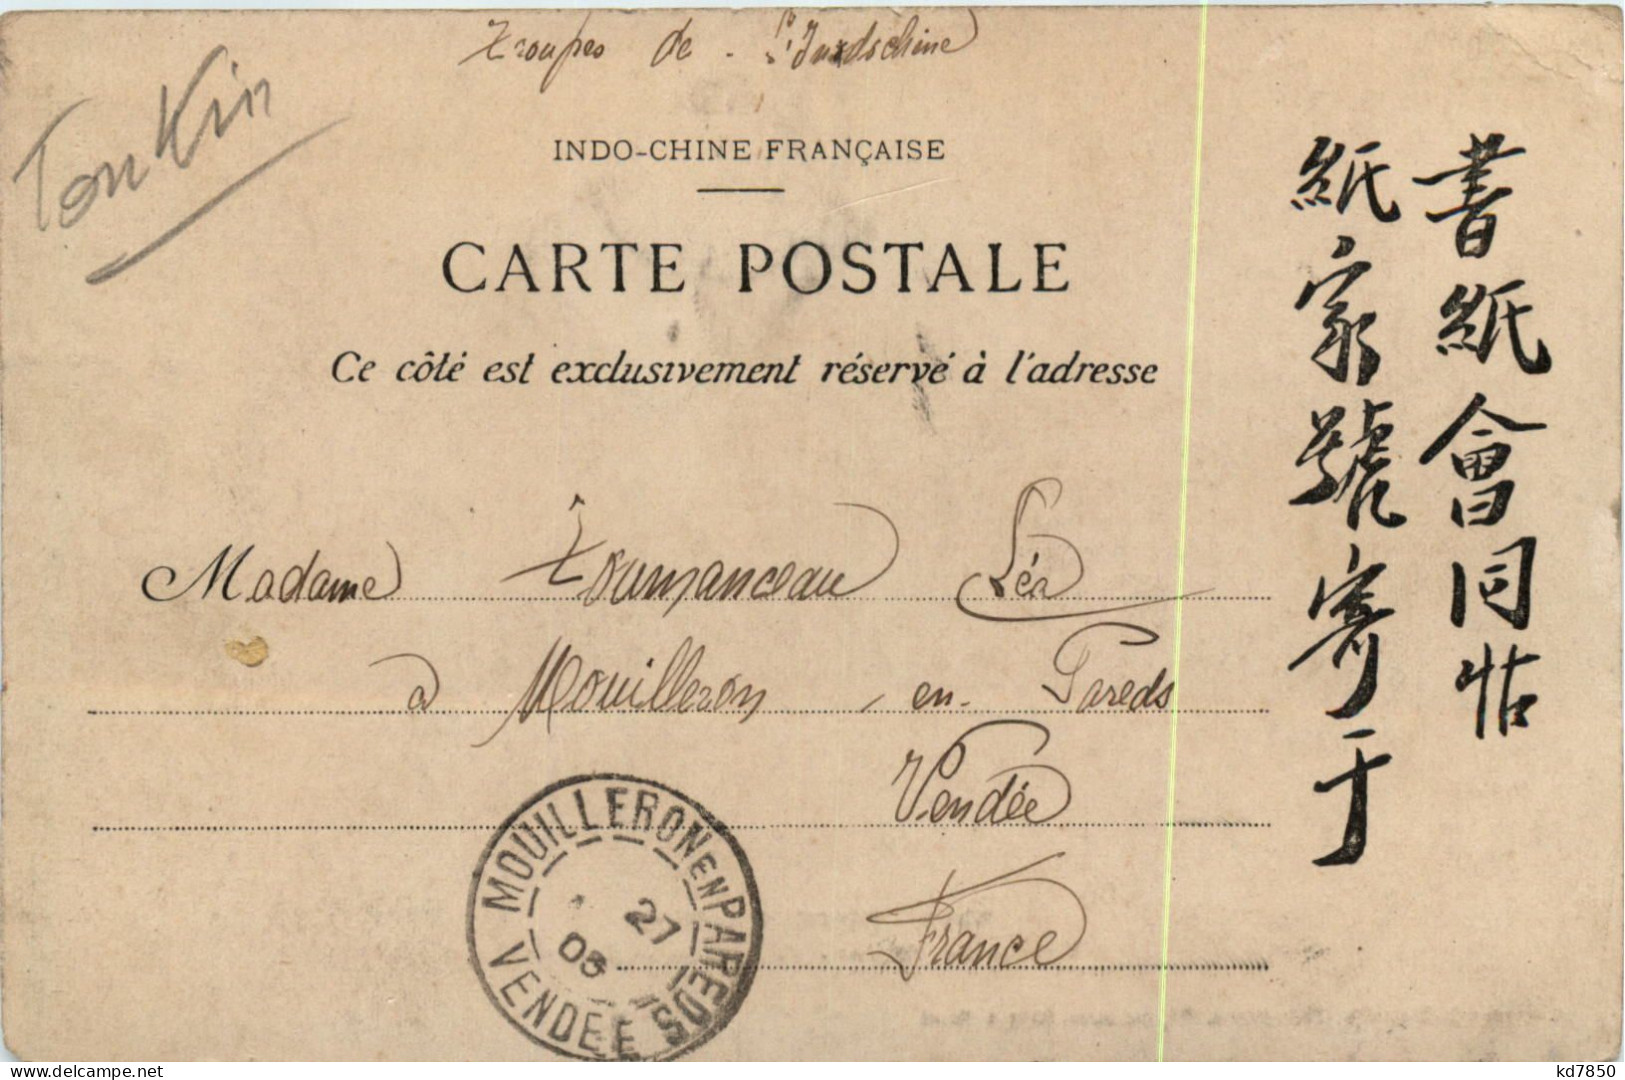 Troupes de l'Indochine
Tonkin
INDO-CHINE FRANÇAISE
CARTE POSTALE
Ce côté est exclusivement réservé à l'adresse
書紙會同帖
紙家號寄于
Madame Léa
à Mouilleron-en-Pareds
Vendée
France
MOUILLERON EN PAREDS
27
VENDÉE
kd7850